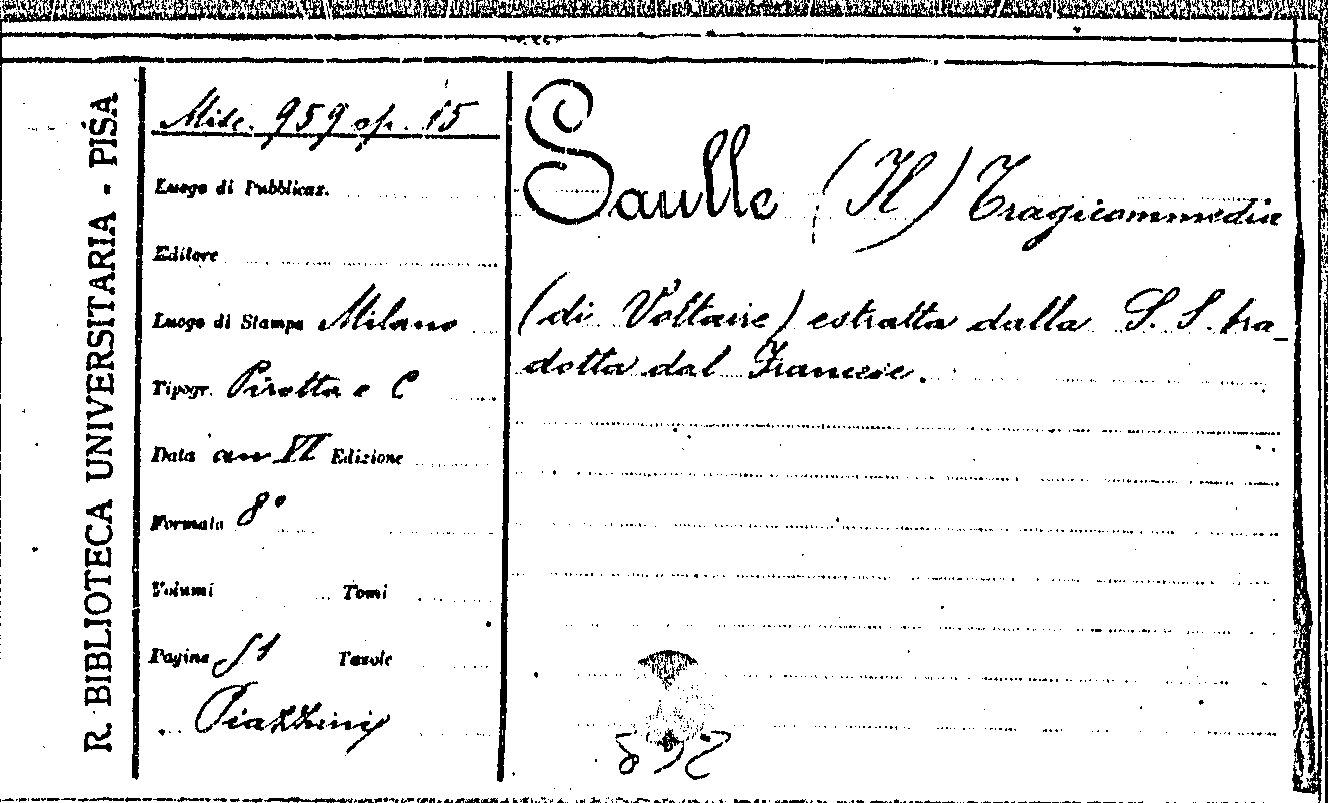 R. BIBLIOTECA UNIVERSITARIA - PISA
Misc. 959 op. 15
Luogo di Pubblicaz.
Editore
Luogo di Stampa Milano
Tipogr. Pirotta e C
Data an VI Edizione
Formato 8°
Volumi Tomi
Pagine 51 Tavole
Piazzini
Saulle (Il) Tragicommedia
(di Voltaire) estratta dalla S. S. tra_
dotta dal Francese.